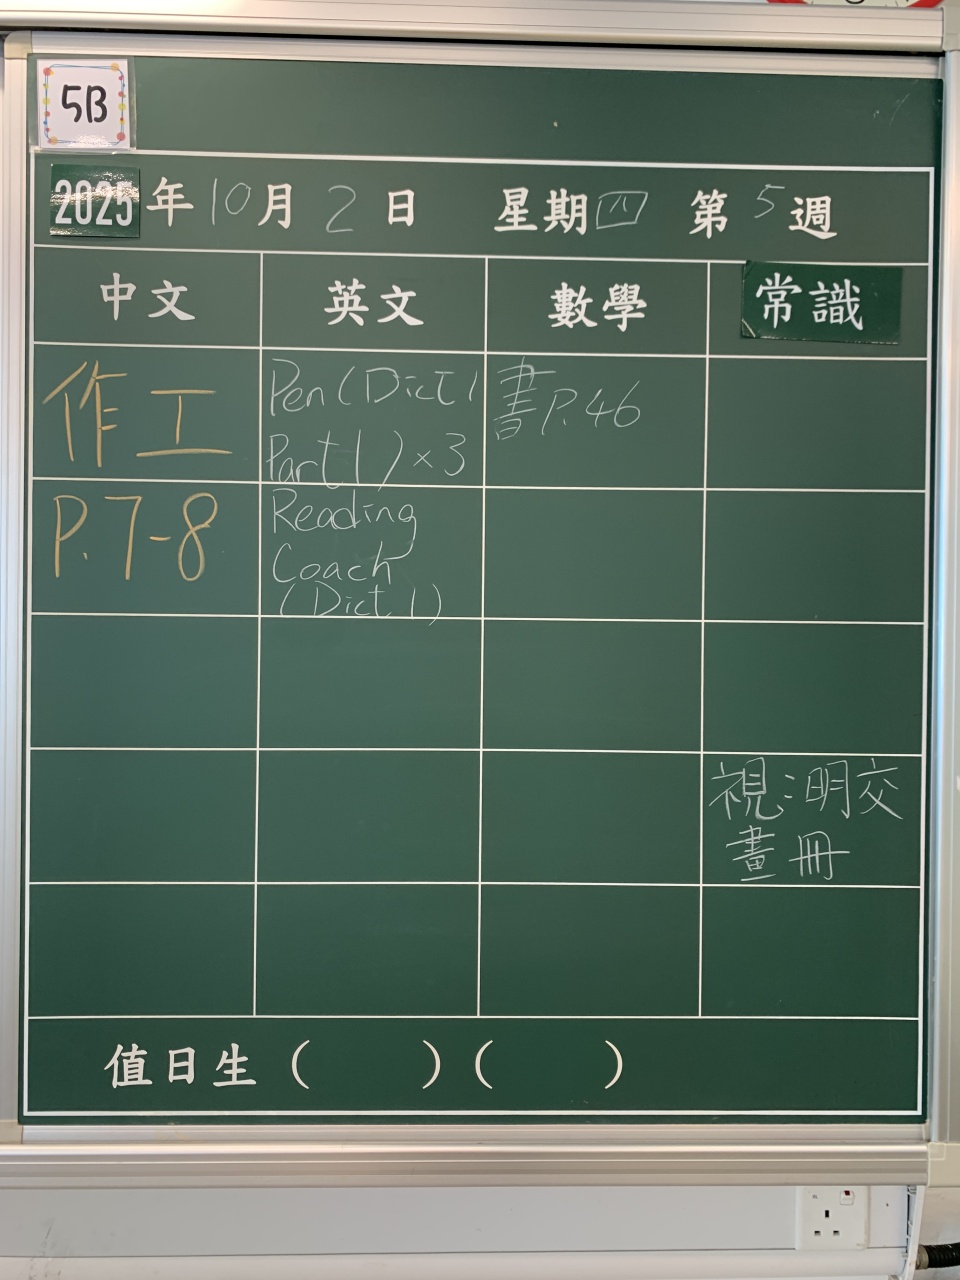 5B
2025年10月2日 星期四 第5週
中文 英文 數學 常識
作工
Pen (Dict 1
Part 1) ×3
書P.46
P.7-8
Reading
Coach
(Dict. 1)
視:明交
畫冊
值日生 ( ) ( )